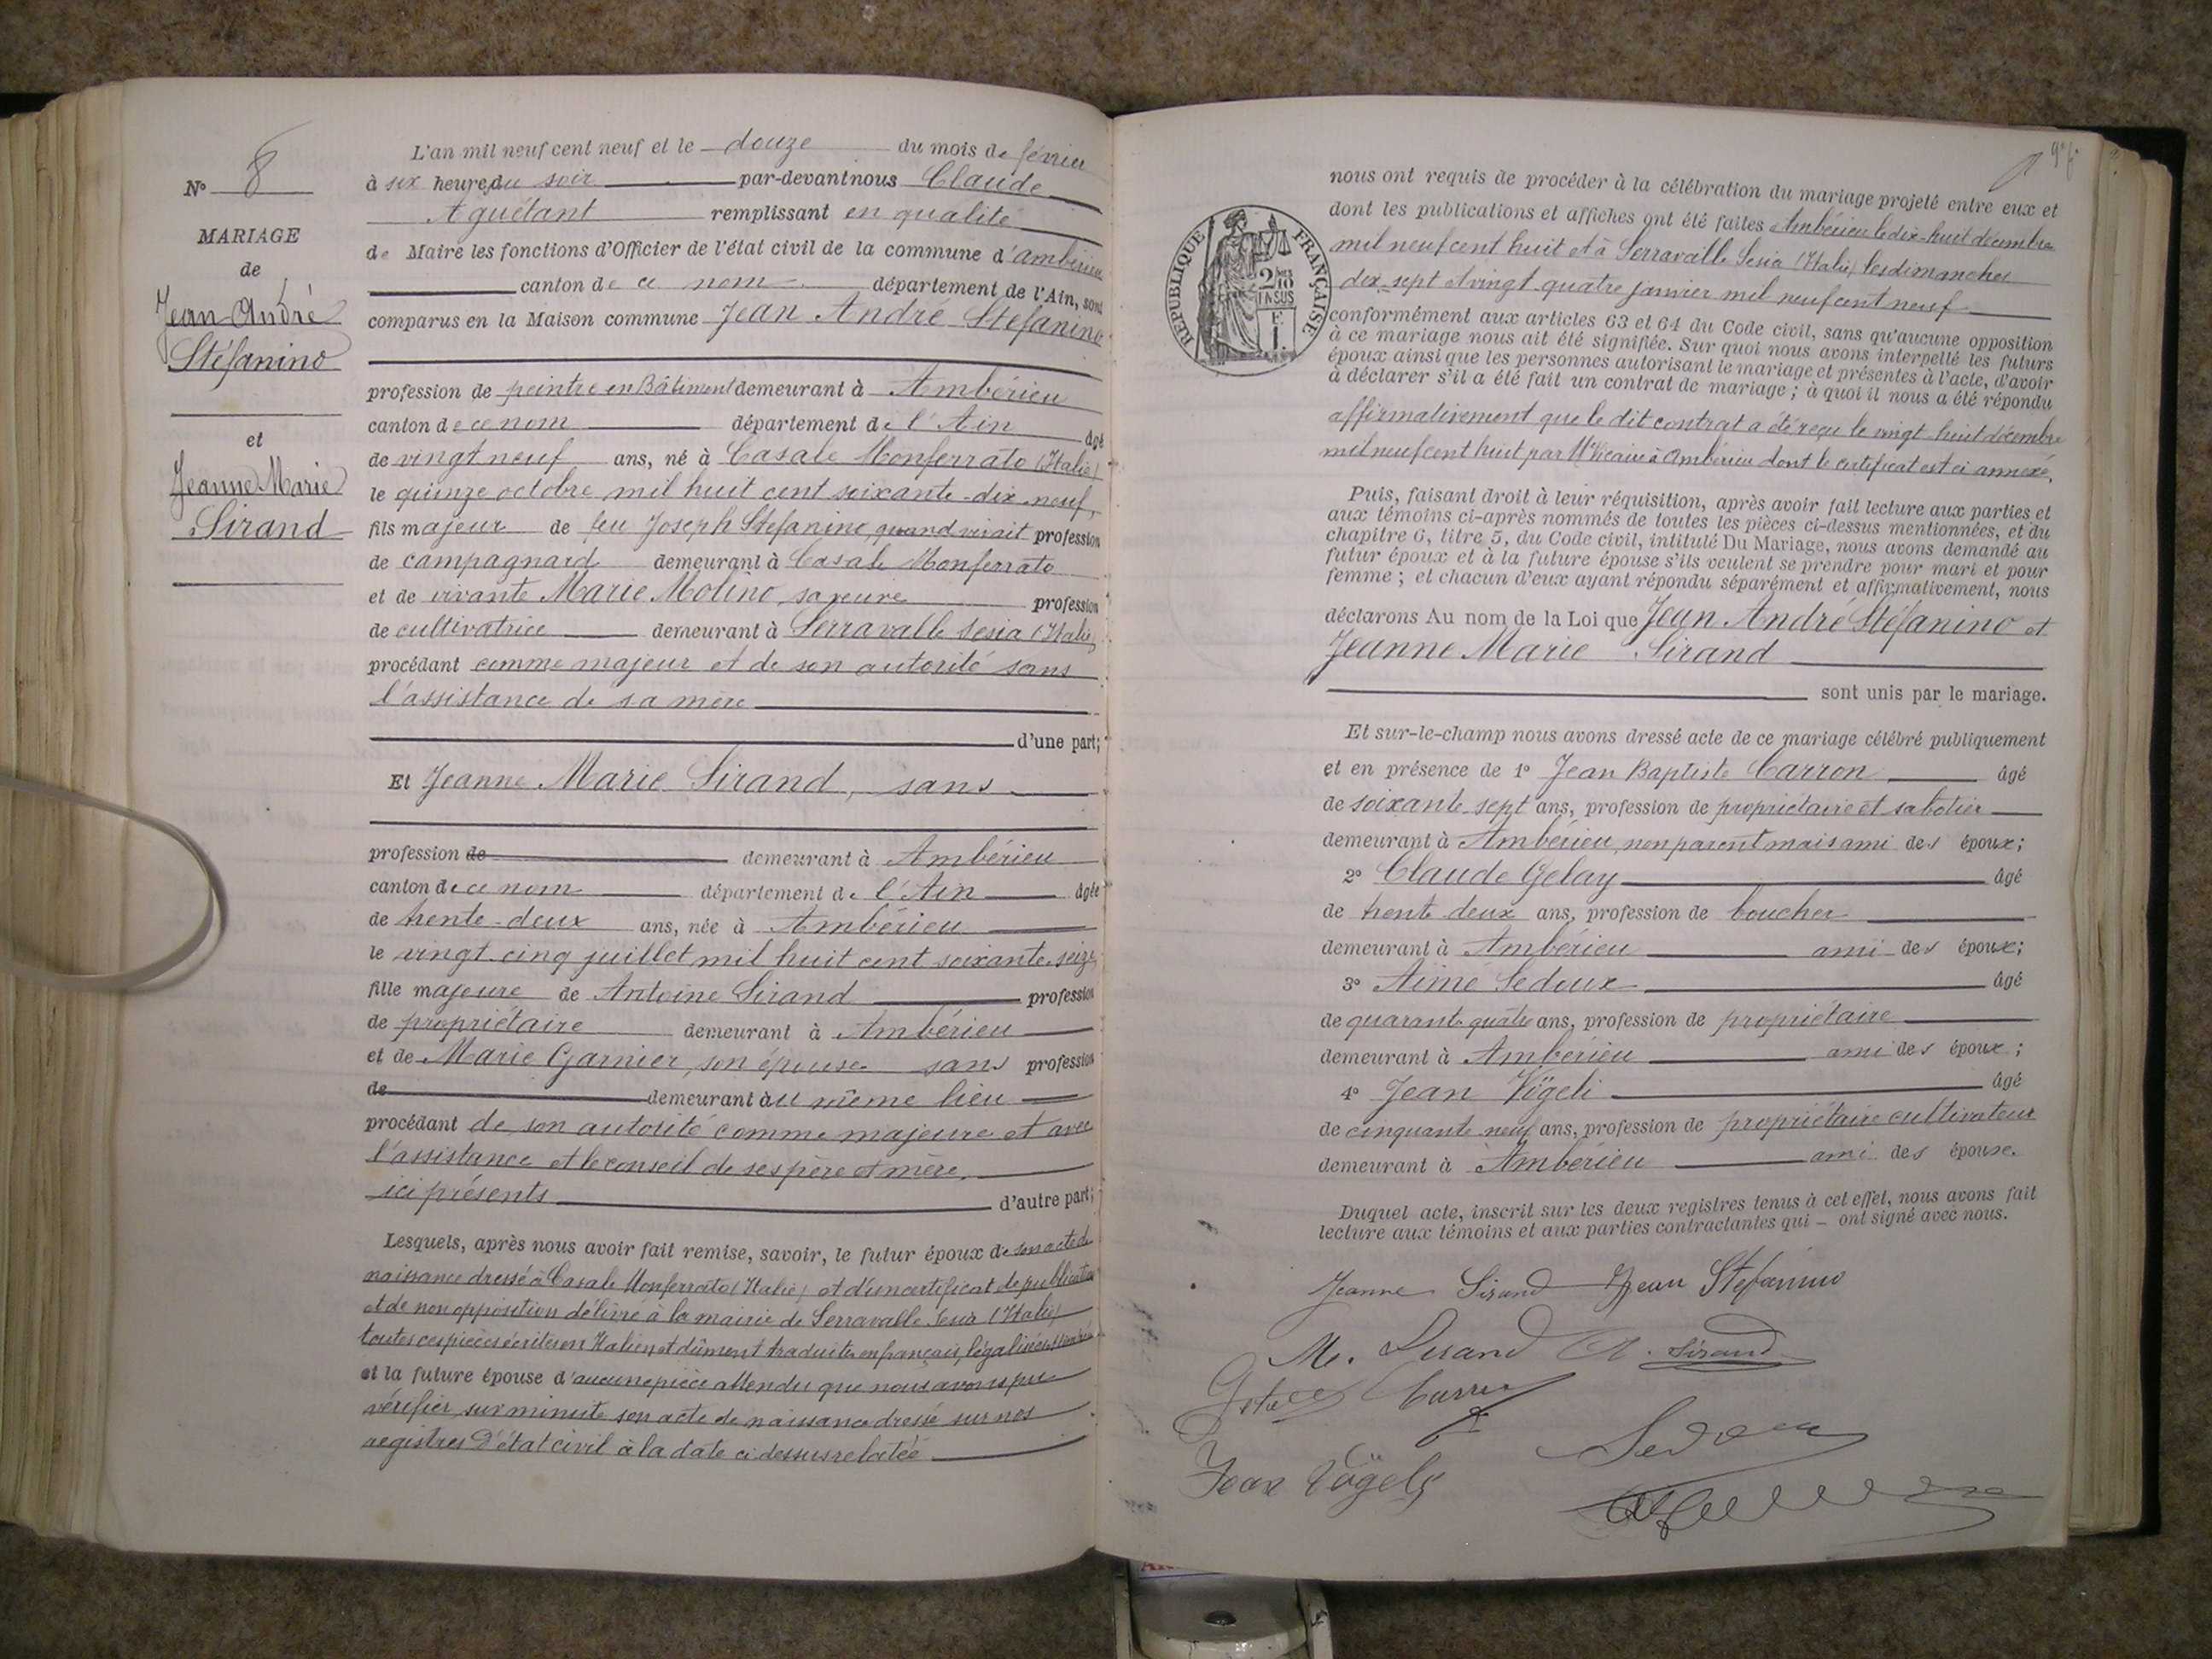 N° 8
MARIAGE
de
Jean André
Stéfanino
et
Jeanne Marie
Sirand
L'an mil neuf cent neuf et le douze du mois de février
à six heures du soir par-devant nous Claude
Aguétant remplissant en qualité
de Maire les fonctions d'Officier de l'état civil de la commune d'Ambérieu
canton de ce nom département de l'Ain, sont
comparus en la Maison commune Jean André Stéfanino
profession de peintre en Bâtiment demeurant à Ambérieu
canton de ce nom département de l'Ain âgé
de vingt neuf ans, né à Casale Monferrato (Italie)
le quinze octobre mil huit cent soixante-dix-neuf,
fils majeur de feu Joseph Stefanino, quand vivait profession
de campagnard demeurant à Casale Monferrato
et de vivante Marie Molino, sa veuve profession
de cultivatrice demeurant à Serravalle Sesia (Italie)
procédant comme majeur et de son autorité sans
l'assistance de sa mère
d'une part;
Et Jeanne Marie Sirand, sans
profession de demeurant à Ambérieu
canton de ce nom département de l'Ain âgée
de trente-deux ans, née à Ambérieu
le vingt-cinq juillet mil huit cent soixante-seize
fille majeure de Antoine Sirand profession
de propriétaire demeurant à Ambérieu
et de Marie Garnier, son épouse sans profession
de demeurant au même lieu
procédant de son autorité comme majeure et avec
l'assistance et le conseil de ses père et mère,
ici présents d'autre part;
Lesquels, après nous avoir fait remise, savoir, le futur époux de son acte de
naissance dressé à Casale Monferrato (Italie) et d'un certificat de publication
et de non opposition délivré à la mairie de Serravalle Sesia (Italie)
toutes ces pièces écrites en Italien et dûment traduites en français, légalisées
et la future épouse d'aucune pièce attendu que nous avons pu
vérifier sur minute son acte de naissance dressé sur nos
registres d'état civil à la date ci dessus relatée
REPUBLIQUE FRANÇAISE
2 10
EN SUS
nous ont requis de procéder à la célébration du mariage projeté entre eux et
dont les publications et affiches ont été faites à Ambérieu le dix-huit décembre
mil neuf cent huit et à Serravalle Sesia (Italie) les dimanches
dix-sept et vingt-quatre janvier mil neuf cent neuf
conformément aux articles 63 et 64 du Code civil, sans qu'aucune opposition
à ce mariage nous ait été signifiée. Sur quoi nous avons interpellé les futurs
époux ainsi que les personnes autorisant le mariage et présentes à l'acte, d'avoir
à déclarer s'il a été fait un contrat de mariage ; à quoi il nous a été répondu
affirmativement que le dit contrat a été reçu le vingt-huit décembre
mil neuf cent huit par Mᵉ Vicaire à Ambérieu dont le certificat est ci annexé.
Puis, faisant droit à leur réquisition, après avoir fait lecture aux parties et
aux témoins ci-après nommés de toutes les pièces ci-dessus mentionnées, et du
chapitre 6, titre 5, du Code civil, intitulé Du Mariage, nous avons demandé au
futur époux et à la future épouse s'ils veulent se prendre pour mari et pour
femme ; et chacun d'eux ayant répondu séparément et affirmativement, nous
déclarons Au nom de la Loi que Jean André Stéfanino et
Jeanne Marie Sirand
sont unis par le mariage.
Et sur-le-champ nous avons dressé acte de ce mariage célébré publiquement
et en présence de 1° Jean Baptiste Carron âgé
de soixante-sept ans, profession de propriétaire et sabotier
demeurant à Ambérieu, non parent mais ami des époux;
2° Claude Gelay âgé
de trente deux ans, profession de boucher
demeurant à Ambérieu ami des époux;
3° Aimé Sedoux âgé
de quarante quatre ans, profession de propriétaire
demeurant à Ambérieu ami des époux;
4° Jean Vögeli âgé
de cinquante neuf ans, profession de propriétaire cultivateur
demeurant à Ambérieu ami des époux.
Duquel acte, inscrit sur les deux registres tenus à cet effet, nous avons fait
lecture aux témoins et aux parties contractantes qui — ont signé avec nous.
Jeanne Sirand Jean Stefanino
M. Sirand A. Sirand
Carron
Sedoux
Jean Vögeli